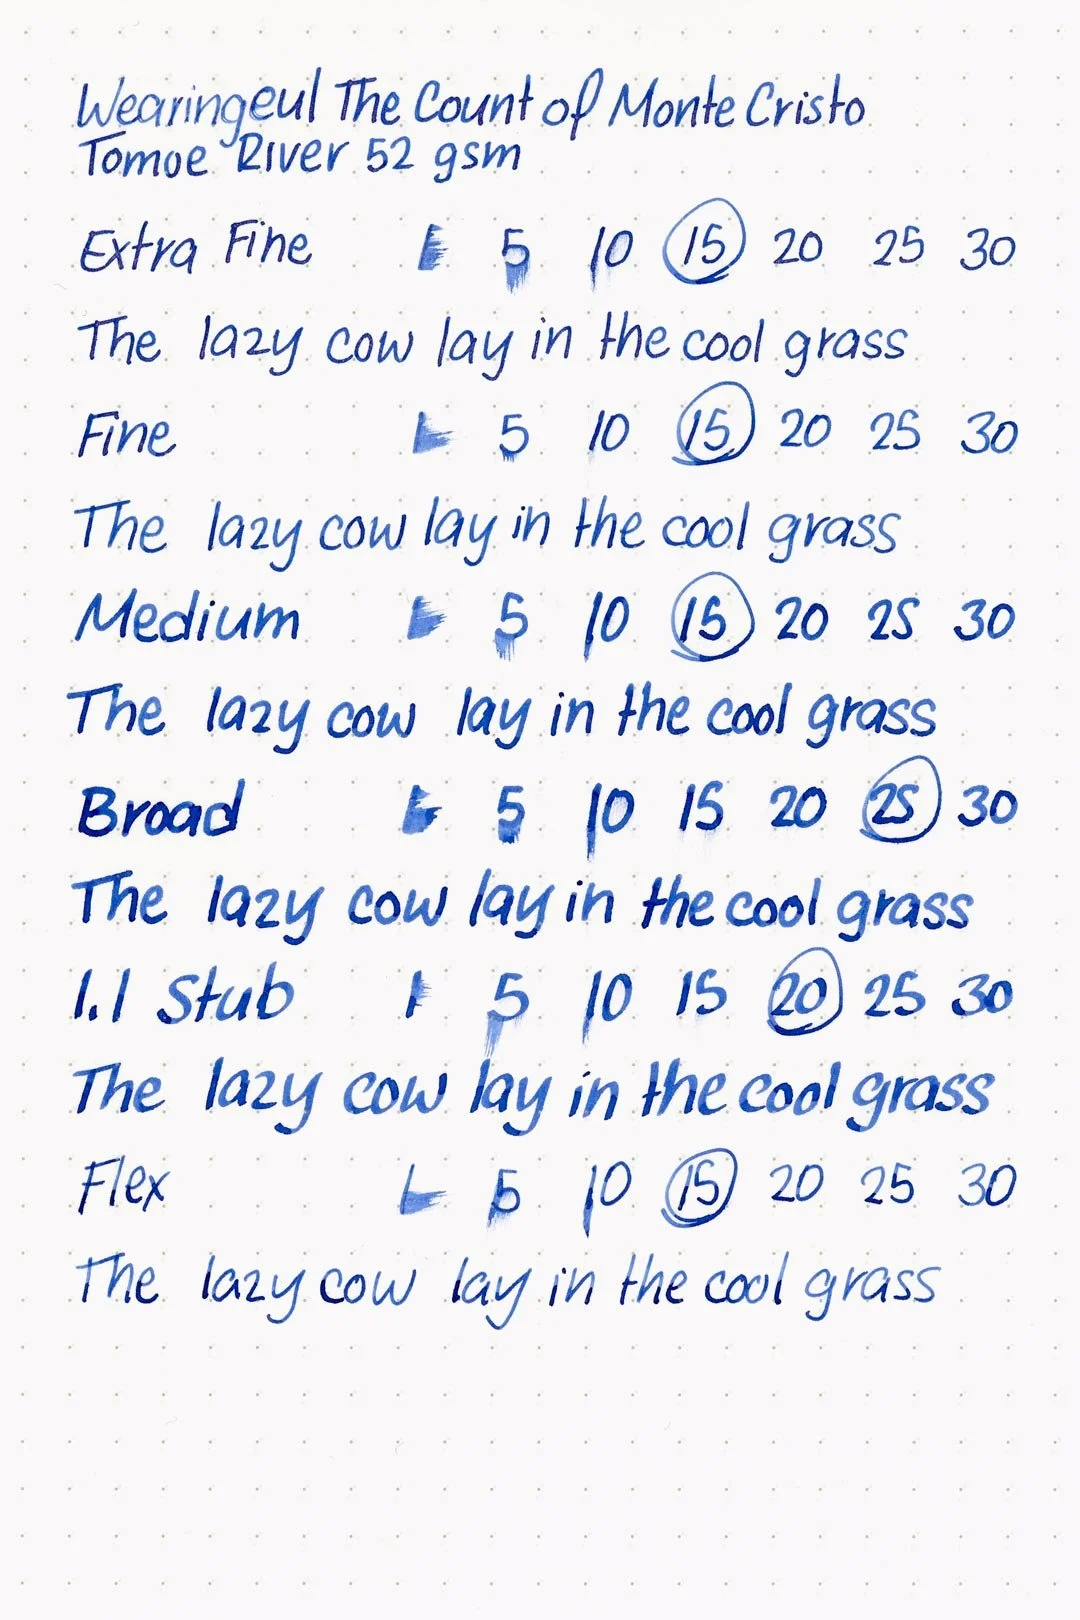 Wearingeul The Count of Monte Cristo
Tomoe River 52 gsm
Extra Fine 1 5 10 15 20 25 30
The lazy cow lay in the cool grass
Fine 1 5 10 15 20 25 30
The lazy cow lay in the cool grass
Medium 1 5 10 15 20 25 30
The lazy cow lay in the cool grass
Broad 1 5 10 15 20 25 30
The lazy cow lay in the cool grass
1.1 Stub 1 5 10 15 20 25 30
The lazy cow lay in the cool grass
Flex 1 5 10 15 20 25 30
The lazy cow lay in the cool grass